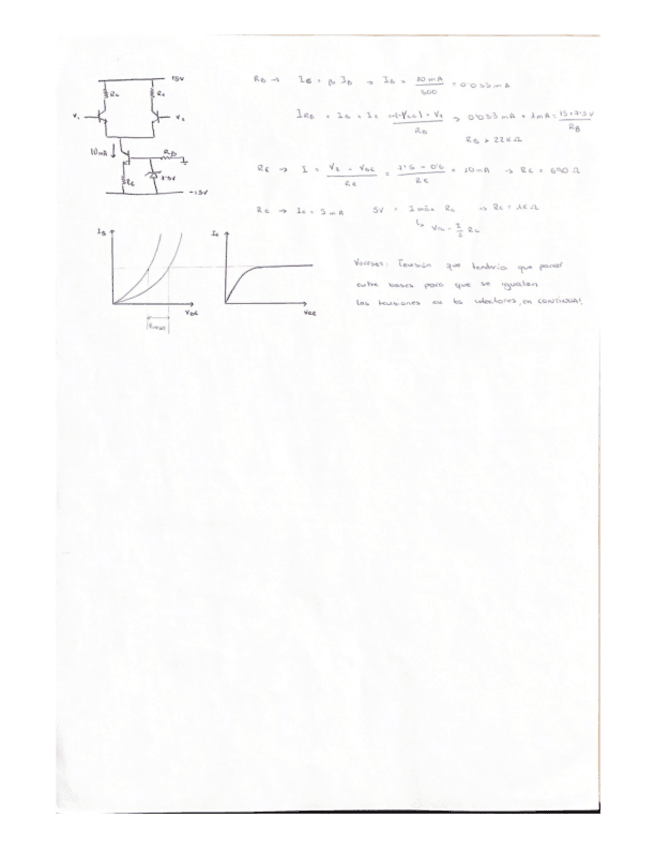 15V
Rc Rc
V1 V2
10mA RB
7.5V
RE
-15V
RB → IE = β IB → IB = 10 mA / 300 = 0'033 mA
IRB = IB + IZ = -(-Vcc) - Vz / RB → 0'033 mA + 1mA = 15-7'5V / RB
RB > 22KΩ
RE → I = Vz - VBE / RE = 7'5 - 0'6 / RE = 10mA → RE = 690 Ω
Rc → Ic = 5 mA 5V = Rc → Rc = 1KΩ
I/2 Rc
IB Ic
VBE VCE
Tensión que tendría que poner
entre bases para que se igualen
las tensiones en los colectores, en CONTINUA!